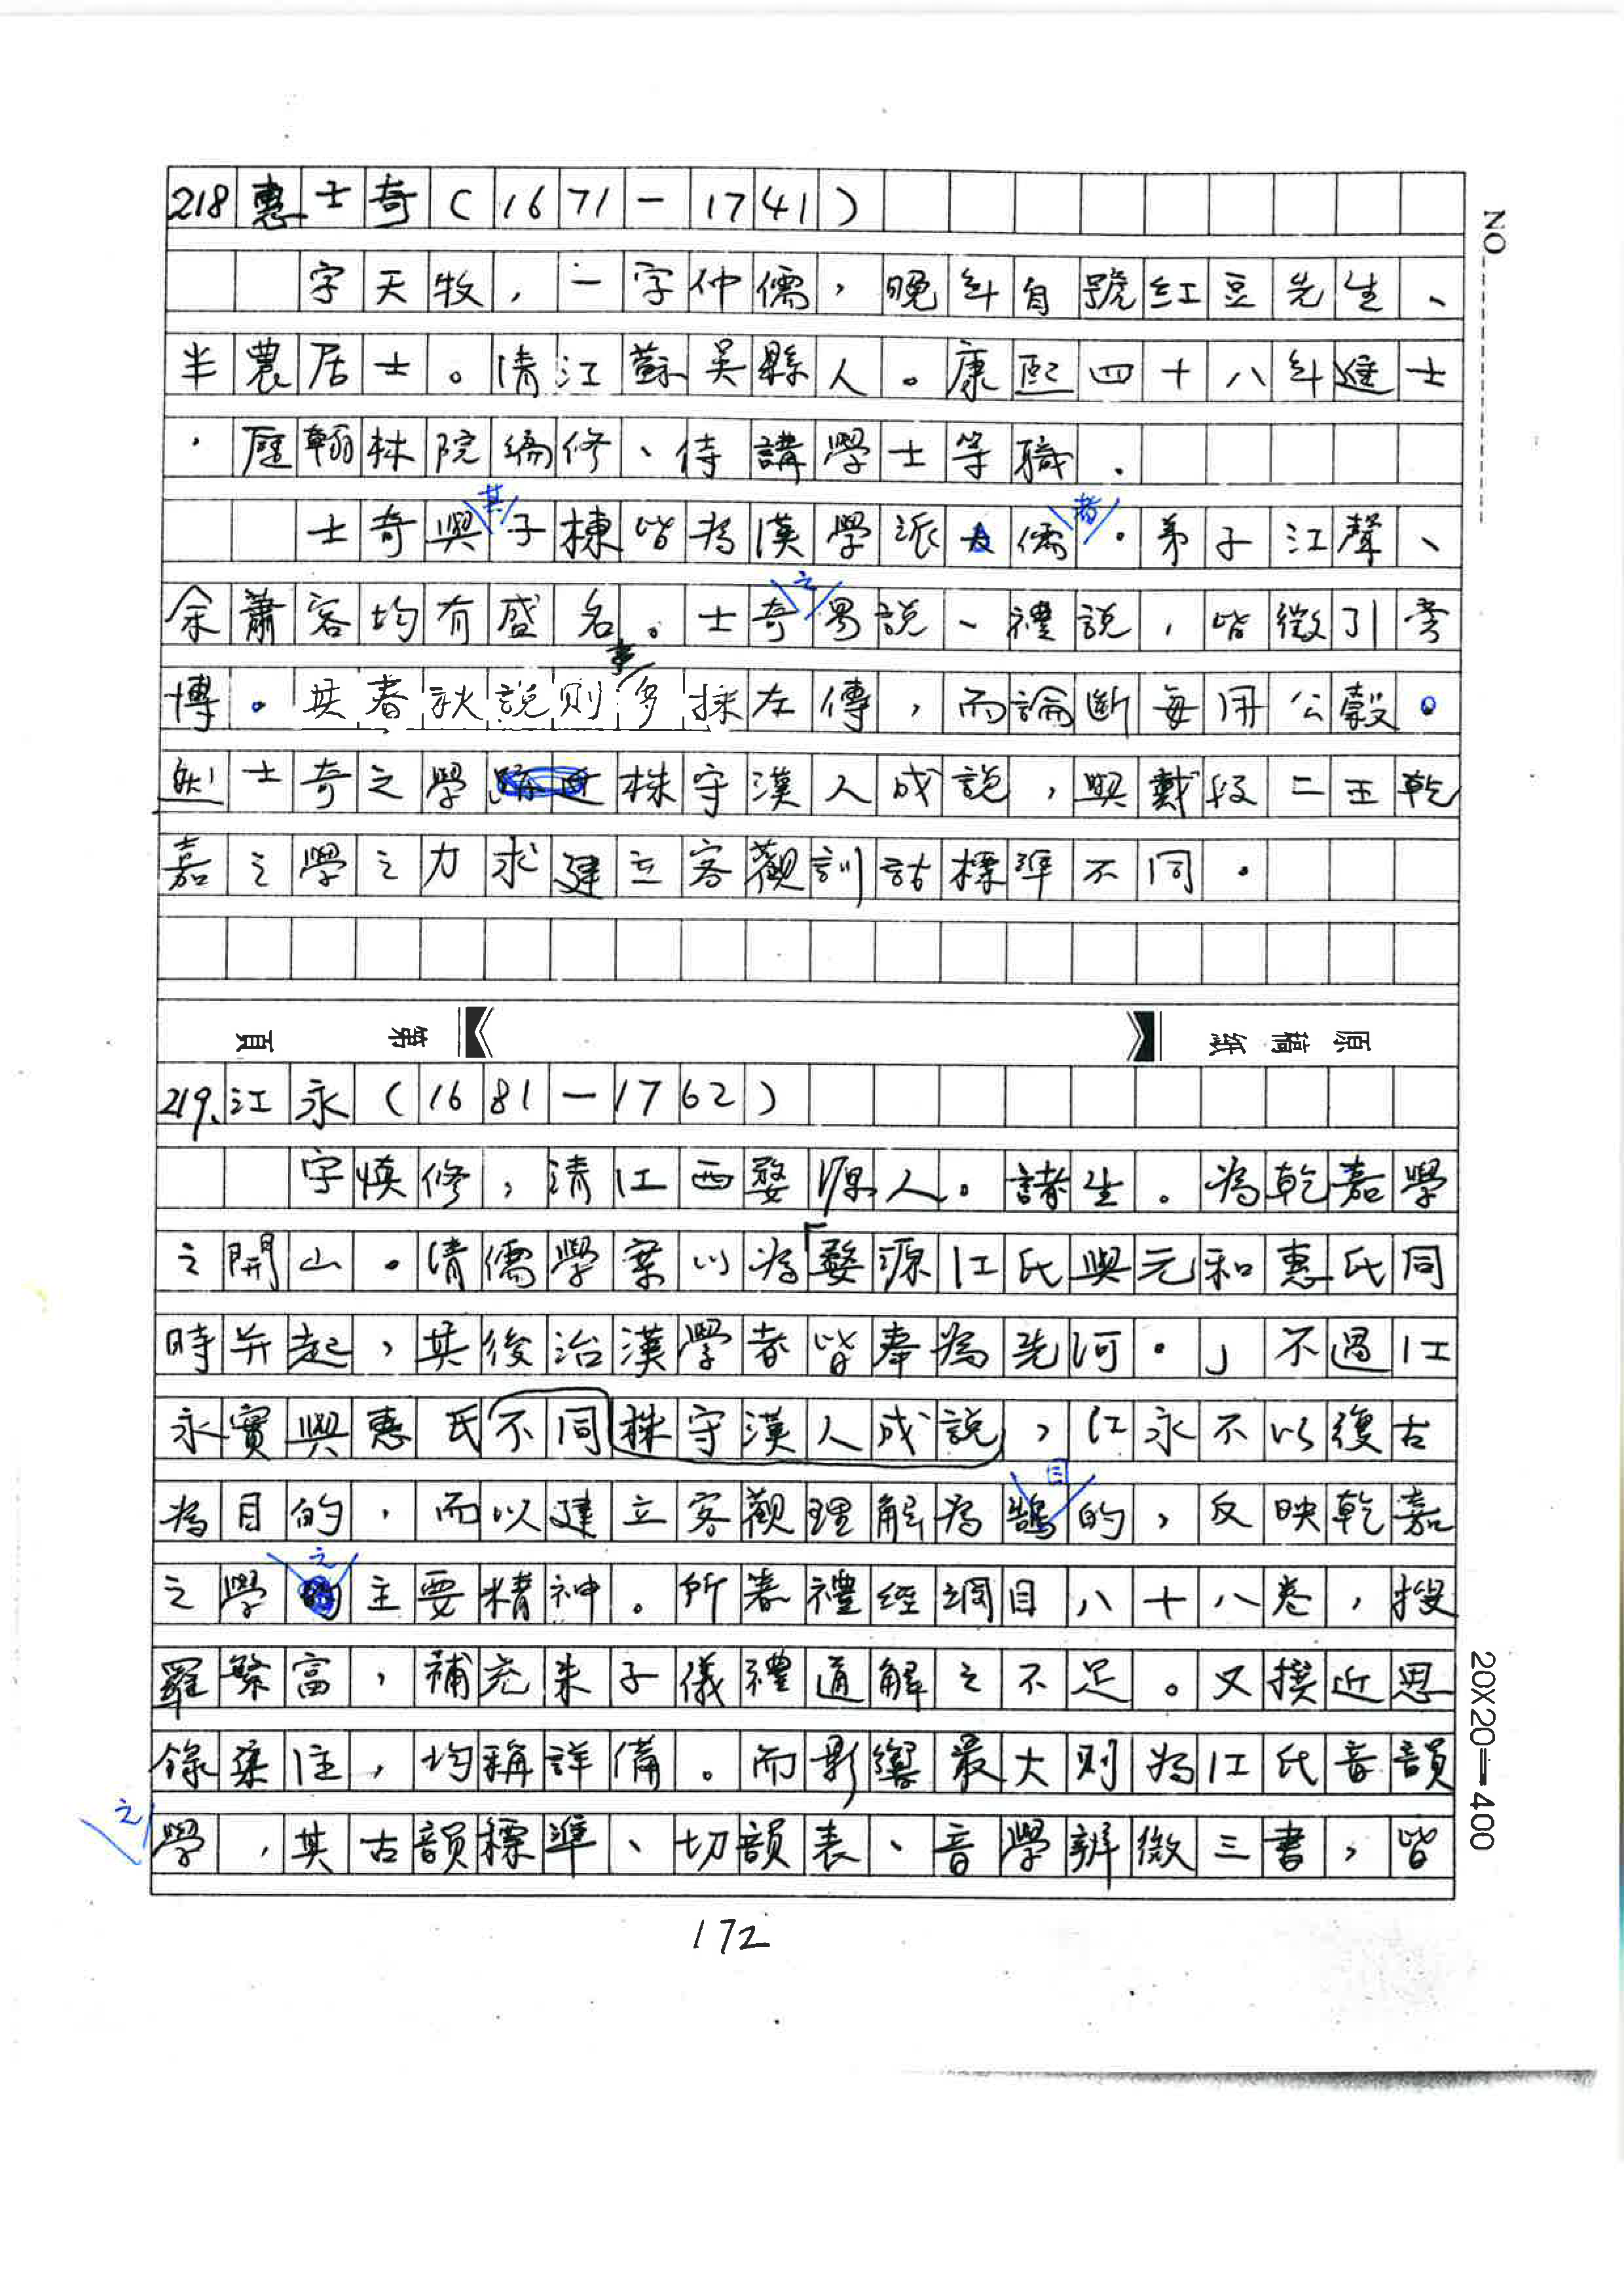 218惠士奇(1671-1741)
NO
字天牧,一字仲儒,晚年自號紅豆先生、
半農居士。清江蘇吳縣人。康熙四十八年進士
,歷翰林院編修、侍講學士等職.
士奇與其子棟皆為漢學派儒者.弟子江聲、
余蕭客均有盛名。士奇之易說、禮說,皆徵引奇
博。其春秋說則事多採左傳,而論斷每用公穀。
然士奇之學株守漢人成說,與戴段二王乾
嘉之學之力求建立客觀訓詁標準不同.
原稿紙 第 頁
219.江永(1681-1762)
字慎修,清江西婺源人.諸生.為乾嘉學
之開山.清儒學案以為「婺源江氏與元和惠氏同
時并起,其後治漢學者皆奉為先河.」不過江
永實與惠氏不同株守漢人成說,江永不以復古
為目的,而以建立客觀理解為目的,反映乾嘉
之學之主要精神。所著禮經綱目八十八卷,搜
羅繁富,補充朱子儀禮通解之不足。又撰近思
錄集注,均稱詳備。而影響最大則為江氏音韻
之學,其古韻標準、切韻表、音學辨微三書,皆
20X20=400
172